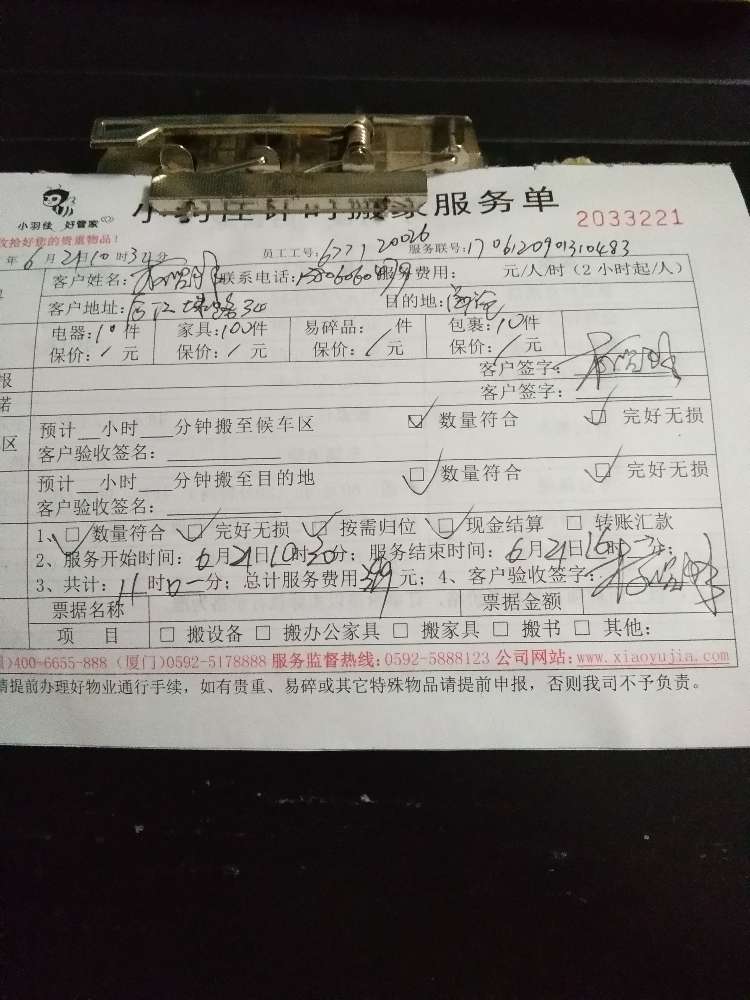 小羽佳 好管家
小羽佳计时搬家服务单
2033221
收拾好您的贵重物品！
年6月21日10时30分 员工工号: 服务联号:1706120901310483
客户姓名: 联系电话: 服务费用: 元/人/时（2小时起/人）
客户地址: 目的地:
电器:10件 家具:100件 易碎品: 件 包裹:10件
保价:/元 保价:/元 保价:/元 保价:/元
报 客户签字:
诺 客户签字:
区 预计__小时___分钟搬至候车区 ☑数量符合 ☑完好无损
客户验收签名:
预计__小时___分钟搬至目的地 ☑数量符合 ☑完好无损
客户验收签名:
1、☑数量符合 ☑完好无损 ☑按需归位 ☑现金结算 □转账汇款
2、服务开始时间: 6月21日10时30分; 服务结束时间: 6月21日16时 分;
3、共计: 时 分; 总计服务费用 元; 4、客户验收签字:
票据名称 票据金额
项 目 □搬设备 □搬办公家具 □搬家具 □搬书 □其他:
)400-6655-888 (厦门)0592-5178888 服务监督热线:0592-5888123 公司网站:www.xiaoyujia.com
请提前办理好物业通行手续，如有贵重、易碎或其它特殊物品请提前申报，否则我司不予负责。